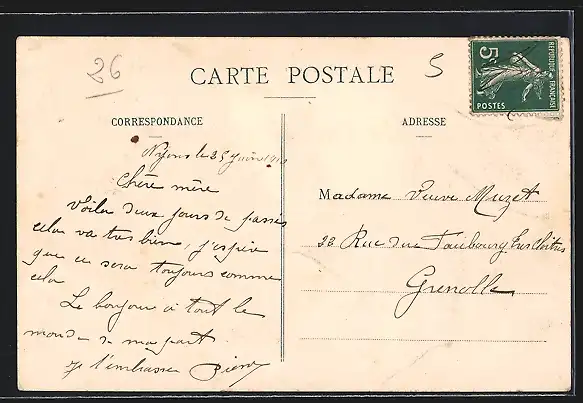 26
CARTE POSTALE
5
5c
REPUBLIQUE FRANÇAISE
POSTES
CORRESPONDANCE
ADRESSE
Nyons le 25 juin
Chère mère
Voila deux jours de passés
cela va tres bien, j'espère
que ce sera toujours comme
cela
Le bonjour à tout le
monde de ma part
je t'embrasse Pierre
Madame Veuve Muzet
22 Rue du Faubourg Très Cloitres
Grenoble